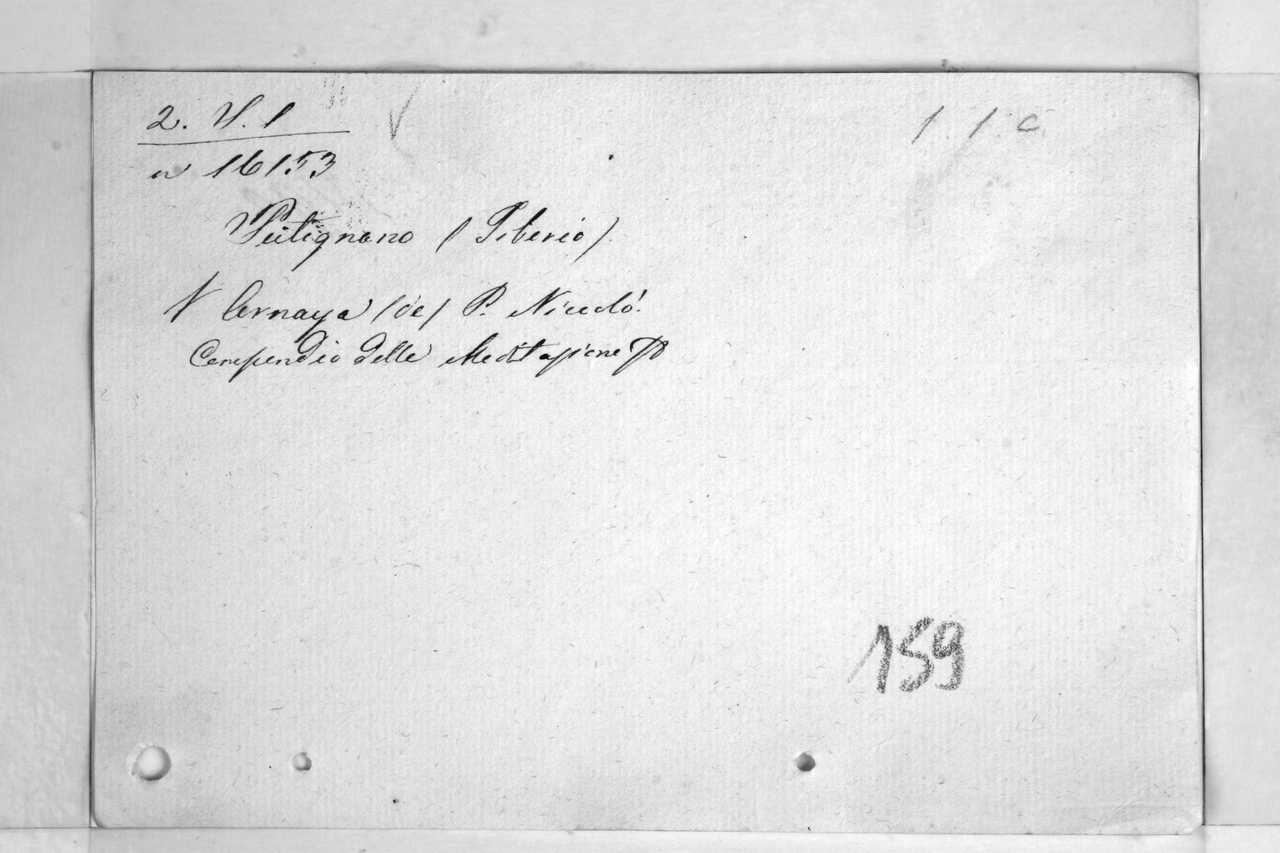 2. V. 1
1. 1. C
n 16153
Putignano (Tiberio)
V Arnaya (de) P. Niccolò.
Compendio delle Meditazione
159